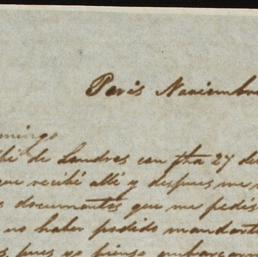 Paris Noviembre
mingo
bí de Londres con fha 27 de
que recibí allí y despues me
s documentos que me pedis
no haber podido mandarte
s, pues yo pienso embarcarme